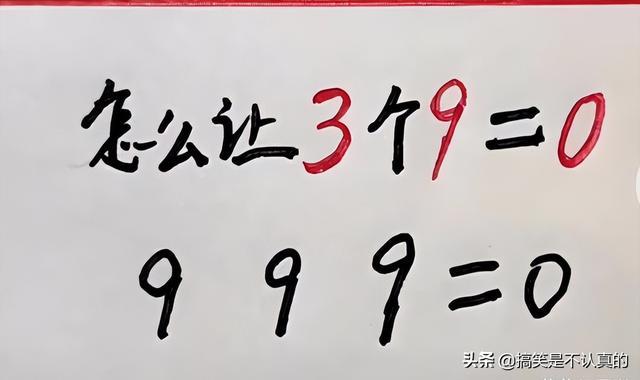 怎么让3个9=0
9 9 9=0
头条 @搞笑是不认真的